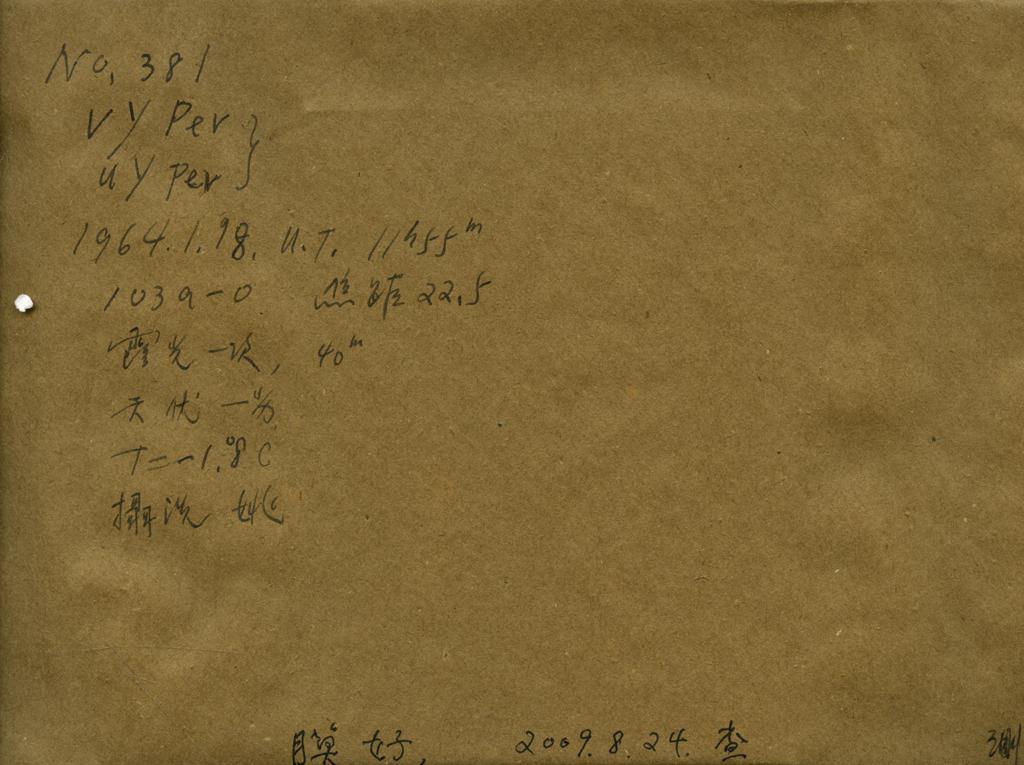 No. 381
VY Per }
UY Per }
1964.1.18. U.T. 11h55m
103a-O 焦距 22.5
露光一次, 40m
天优一必
T=-1.°8 C
攝洗 姚
膜 好, 2009.8.24. 查